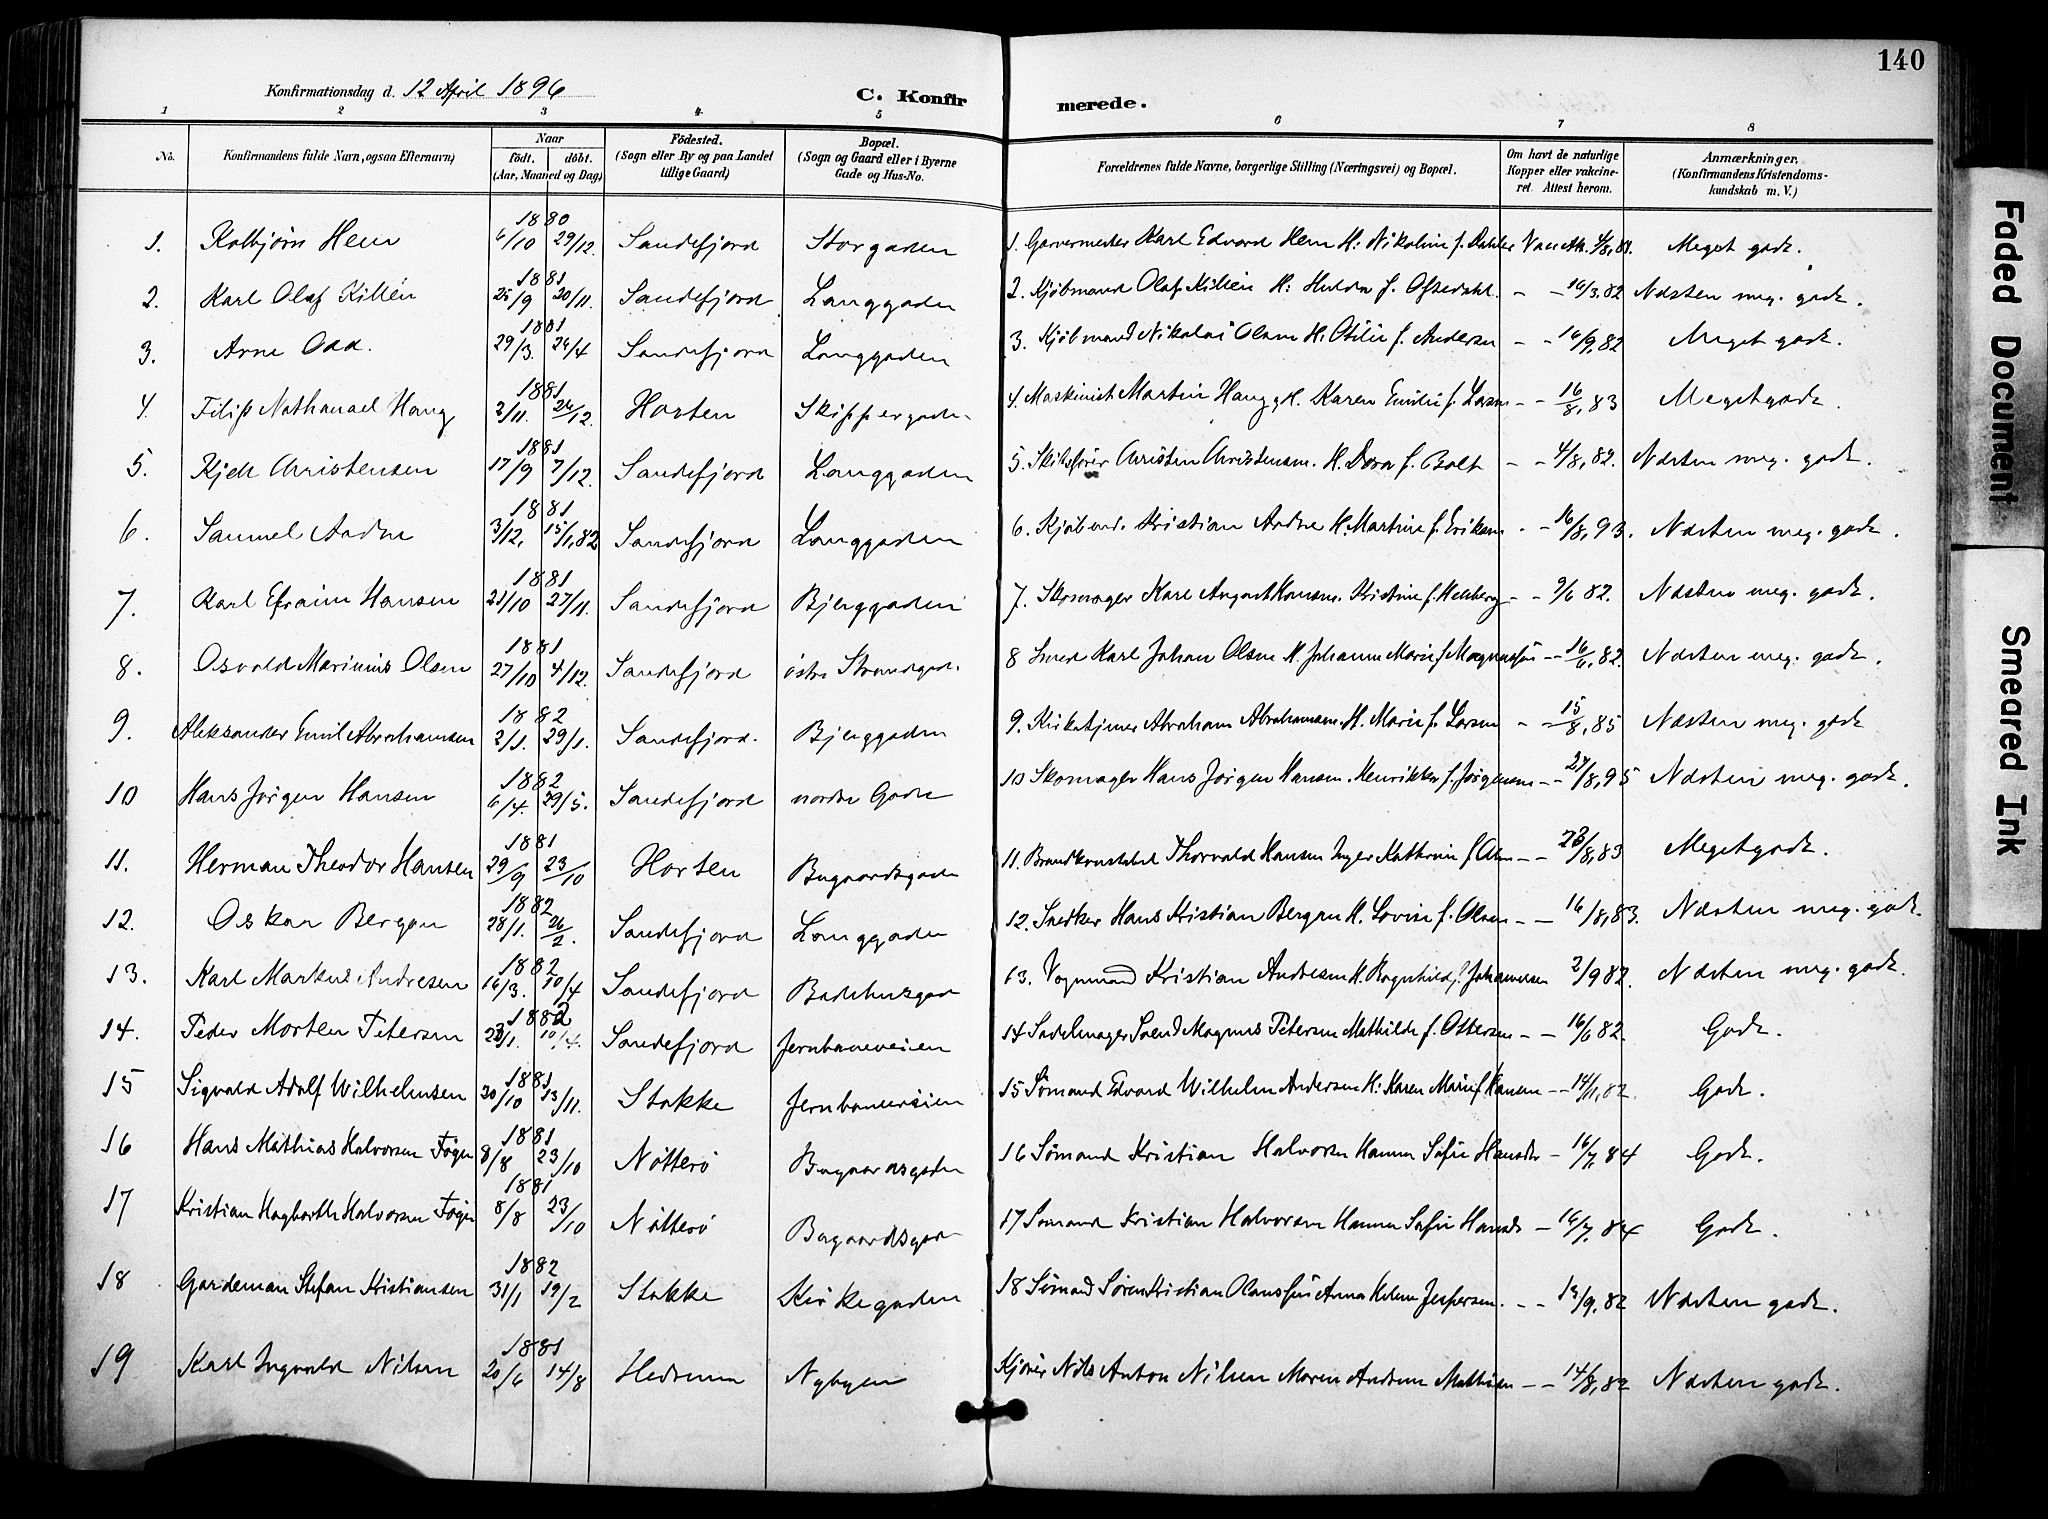 140
Konfirmationsdag d. 12 April 1896 C. Konfirmerede.
1 2 3 4 5 6 7 8
No. Konfirmandens fulde Navn, ogsaa Efternavn) Naar født. døbt. (Aar, Maaned og Dag) Födested. (Sogn eller By og paa Landet tillige Gaard) Bopæl. (Sogn og Gaard eller i Byerne Gade og Hus-No. Forældrenes fulde Navne, borgerlige Stilling (Næringsvei) og Bopæl. Om havt de naturlige Kopper eller vaccineret. Attest herom. Anmærkninger. (Konfirmandens Kristendomskundskab m. V.)
1. Kolbjørn Hem 1880 6/10 29/12. Sandefjord Storgaden 1. Garvermester Karl Edvard Hem H: Nikoline f. Dahler Vacc Att. 4/8, 81. Meget godt.
2. Karl Olaf Killén 1881 25/9 20/11. Sandefjord Langgaden 2. Kjøbmand Olaf Killén H: Hulda f. Oftedahl. - - 16/3. 82 Næsten meg. godt.
3. Arne Odd. 1881 29/3. 24/4 Sandefjord Langgaden 3. Kjøbmand Nikolai Olsen H. Otilie f. Andersen - - 16/9, 82 Meget godt.
4. Filip Nathanael Haug 1881 2/11. 26/12. Horten Skippergade. 4. Maskinist Martin Haug H. Karen Emilie f. Larsen - - 16/8, 83 Meget godt.
5. Kjell Christensen 1881 17/9 7/12. Sandefjord Langgaden 5. Skibsfører Christen Christensen. H. Dora f. Bolt - - 4/8, 82. Næsten meg. godt.
6. Samuel Andre 1881 3/12. 15/1, 82 Sandefjord Langgaden 6. Kjøbmd. Kristian Andre H. Martine f. Eriksen - - 16/8, 93. Næsten meg. godt.
7. Karl Efraim Hansen 1881 21/10 27/11. Sandefjord Bjerggaden 7. Skomager Karl August Hansen. Kristine f. Melberg - - 9/6 82. Næsten meg. godt.
8. Osvald Marinius Olsen 1881 27/10 4/12. Sandefjord østre Strandgad. 8 Smed Karl Johan Olsen H. Johanne Marie f. Magnussen - - 16/6, 82. Næsten meg. godt.
9. Aleksander Emil Abrahamsen 1882 2/1. 29/1. Sandefjord. Bjerggaden 9. Kirketjener Abraham Abrahamsen. H. Marie f. Larsen - - 15/8, 85 Næsten meg. godt
10 Hans Jørgen Hansen 1882 6/4. 29/5. Sandefjord nordre Gade 10 Skomager Hans Jørgen Hansen. Henrikke f. Jørgensen - - 27/8, 95 Næsten meg. godt.
11. Herman Theodor Hansen 1881 29/9 23/10 Horten Bugaardsgade 11. Brandkonstabel Thorvald Hansen Inger Kathrine f. Olsen - - 28/8, 83 Meget godt.
12. Oskar Bergan 1882 28/1. 26/2. Sandefjord Langgaden 12. Snedker Hans Kristian Bergan H. Lovise f. Olsen - - 16/8, 83. Næsten meg. godt.
13. Karl Markus Andresen 1882 16/3. 10/4 Sandefjord Badehusgad 13. Vognmand Kristian Andresen H. Ragnhild f. Johannesen 2/9 82. Næsten meg. godt.
14. Peder Morten Petersen 1882 23/1. 10/4. Sandefjord Jernbaneveien 14 Sadelmager Svend Magnus Petersen Mathilde f. Ottersen - - 16/6 82. Godt.
15 Sigvald Adolf Wilhelmsen 1881 30/10 13/11. Stokke Jernbaneveien 15 Sømand Edvard Wilhelm Andersen H: Karen Marie f. Hansen - - 14/11, 82. Godt.
16 Hans Mathias Halvorsen Føyn 1881 8/8 23/10 Nøtterø Bugaardsgaden 16 Sømand Kristian Halvorsen Hanna Sofie Hansdtr - 16/7, 84 Godt.
17 Kristian Hagbarth Halvorsen Føyn 1881 8/8 23/10 Nøtterø Bugaardsgade 17 Sømand Kristian Halvorsen Hanna Sofie Hansdt - 16/7. 84 Godt.
18 Gardeman Stefan Kristiansen 1882 31/1 19/2 Stokke Kirkegaden 18 Sømand Søren Kristian Olaussen Anna Helene Jespersen. - - 13/9, 82 Næsten godt.
19 Karl Ingvald Nilsen 1881 20/6 14/8 Hedrum Nybyen Kjører Nils Anton Nilsen Maren Andrine Mathisen - - 14/8, 82 Næsten godt.
Faded Document
Smeared Ink